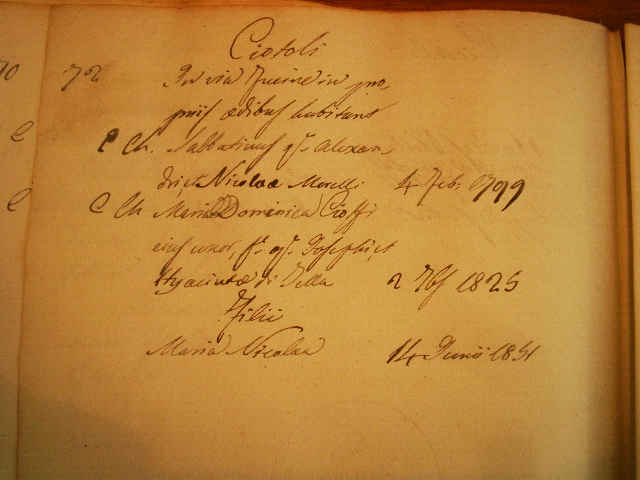 Ciotoli
70 72 In via Fucine in pro,
priis ædibus habitant
C C Ch. Sabbatinus qm Alexan,
dri et Nicolaa Morelli 4 Feb: 1799
C C Ch Maria Dominica Cioffi
eius uxor, fa qm Josephi, et
Hyacinta di Zella 2 7bs 1825
Filii
Maria Nicolaa 14 Junii 1851